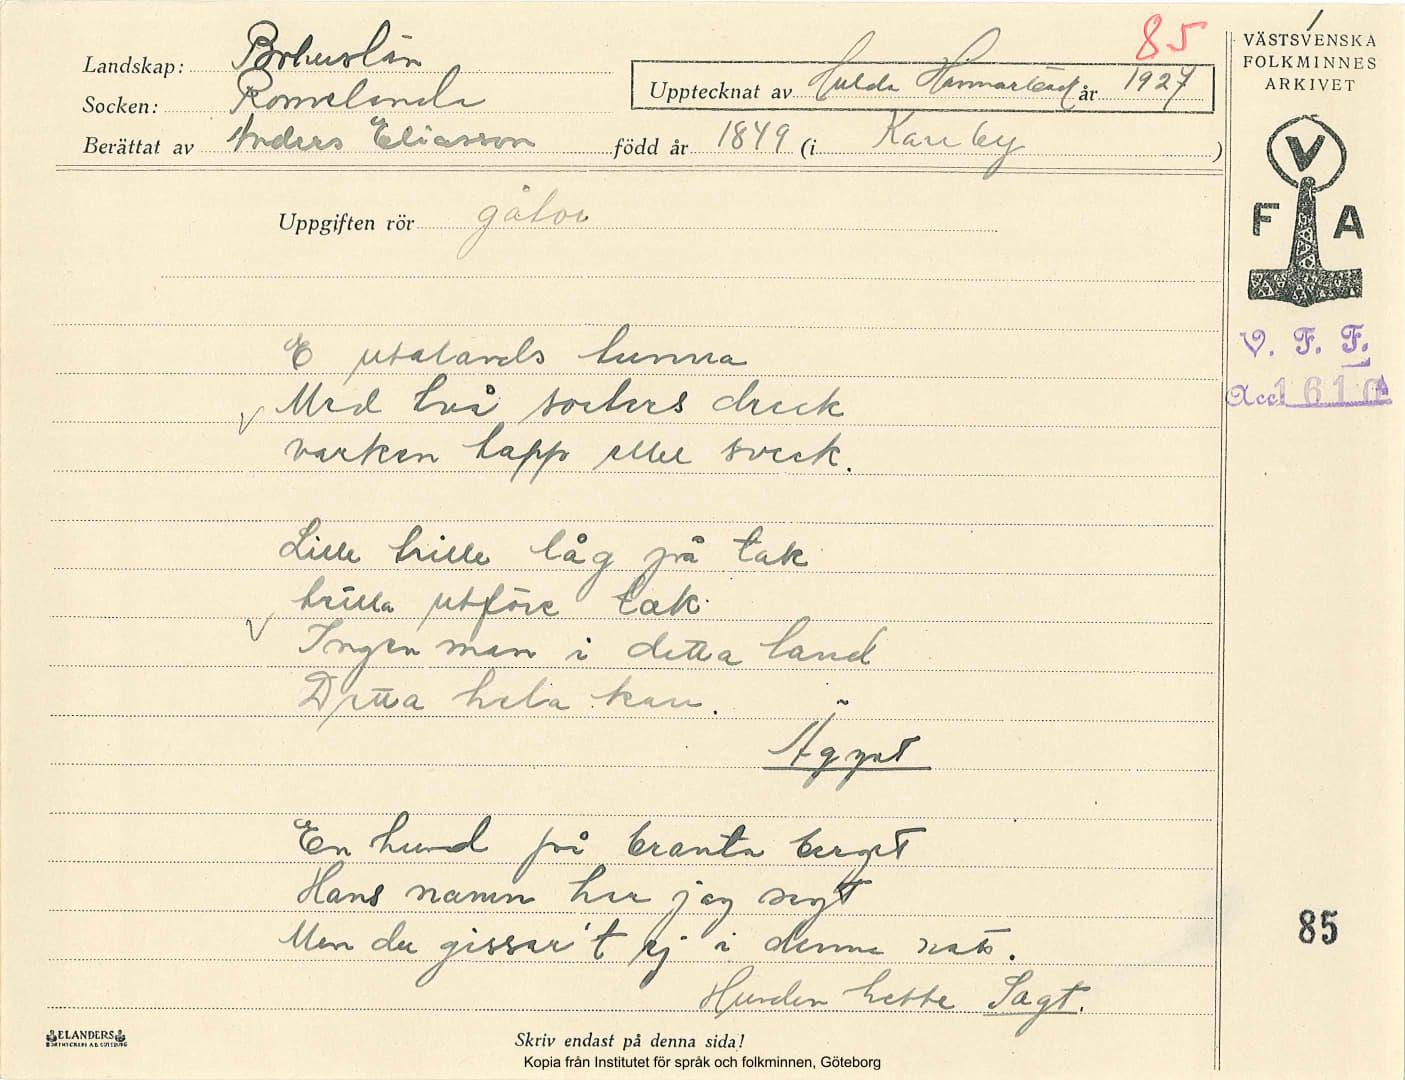 Landskap: Bohuslän
Socken: Romelanda
Berättat av Anders Eliasson född år 1849 (i Kareby )
Upptecknat av Hulda Hammarbäck år 1927
85
Uppgiften rör gåtor
E utalands tunna
Med två sorters dreck
varken tapp eller sveck.
Lille trille låg på tak
trilla utföre tak
Ingen man i detta land
Detta hela kan.
Ägget
En hund på branta berget
Hans namn har jag sagt
Men du gissar't ej i denna natt.
Hunden hette Sagt.
VÄSTSVENSKA
FOLKMINNES
ARKIVET
V
F A
V. F. F.
Acc. 1610
85
ELANDERS
Skriv endast på denna sida!
Kopia från Institutet för språk och folkminnen, Göteborg